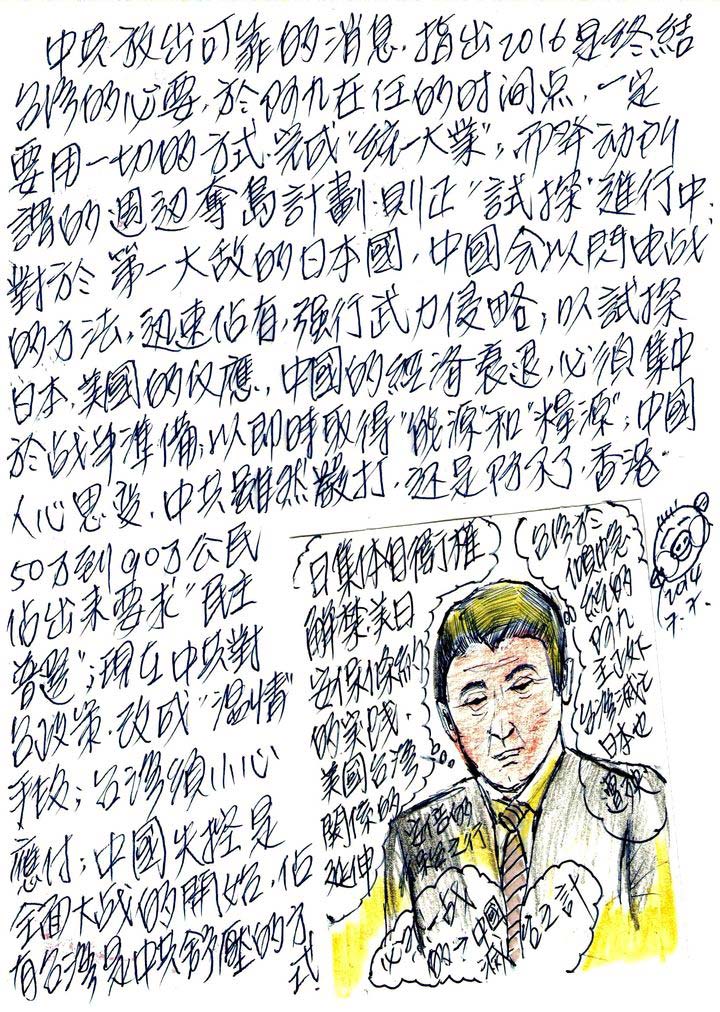 中共放出可靠的消息.指出2016是終結
台灣的必要,於阿九在任的时间点,一定
要用一切的方式.完成“統一大業”;而發动到
謂的週边奪島計劃.則正“試探”進行中.
對於第一大敌的日本國,中國会以閃电战
的方法,迅速佔有,强行武力侵略;以試探
日本,美國的反應,中國的經济衰退,必須集中
於战争準備,以即時取得“能源”和“糧源”;中國
人心思变.中共雖然散打.还是防不了.香港
50万到90万公民
佔出来要求“民主
普選”;現在中共對
台政策.改成“温情”
手段;台灣須小心
應付;中國失控是
全面大战的開始,佔
有台灣是中共舒壓的方
式.
日集体自衛權
解禁.美日
安保條約
的实践.
美國台灣
關係的
延伸
台灣於
統的
阿九
台灣滅亡
日本也
2014
7.7.
之行
必
一战
的中國
滅
之計